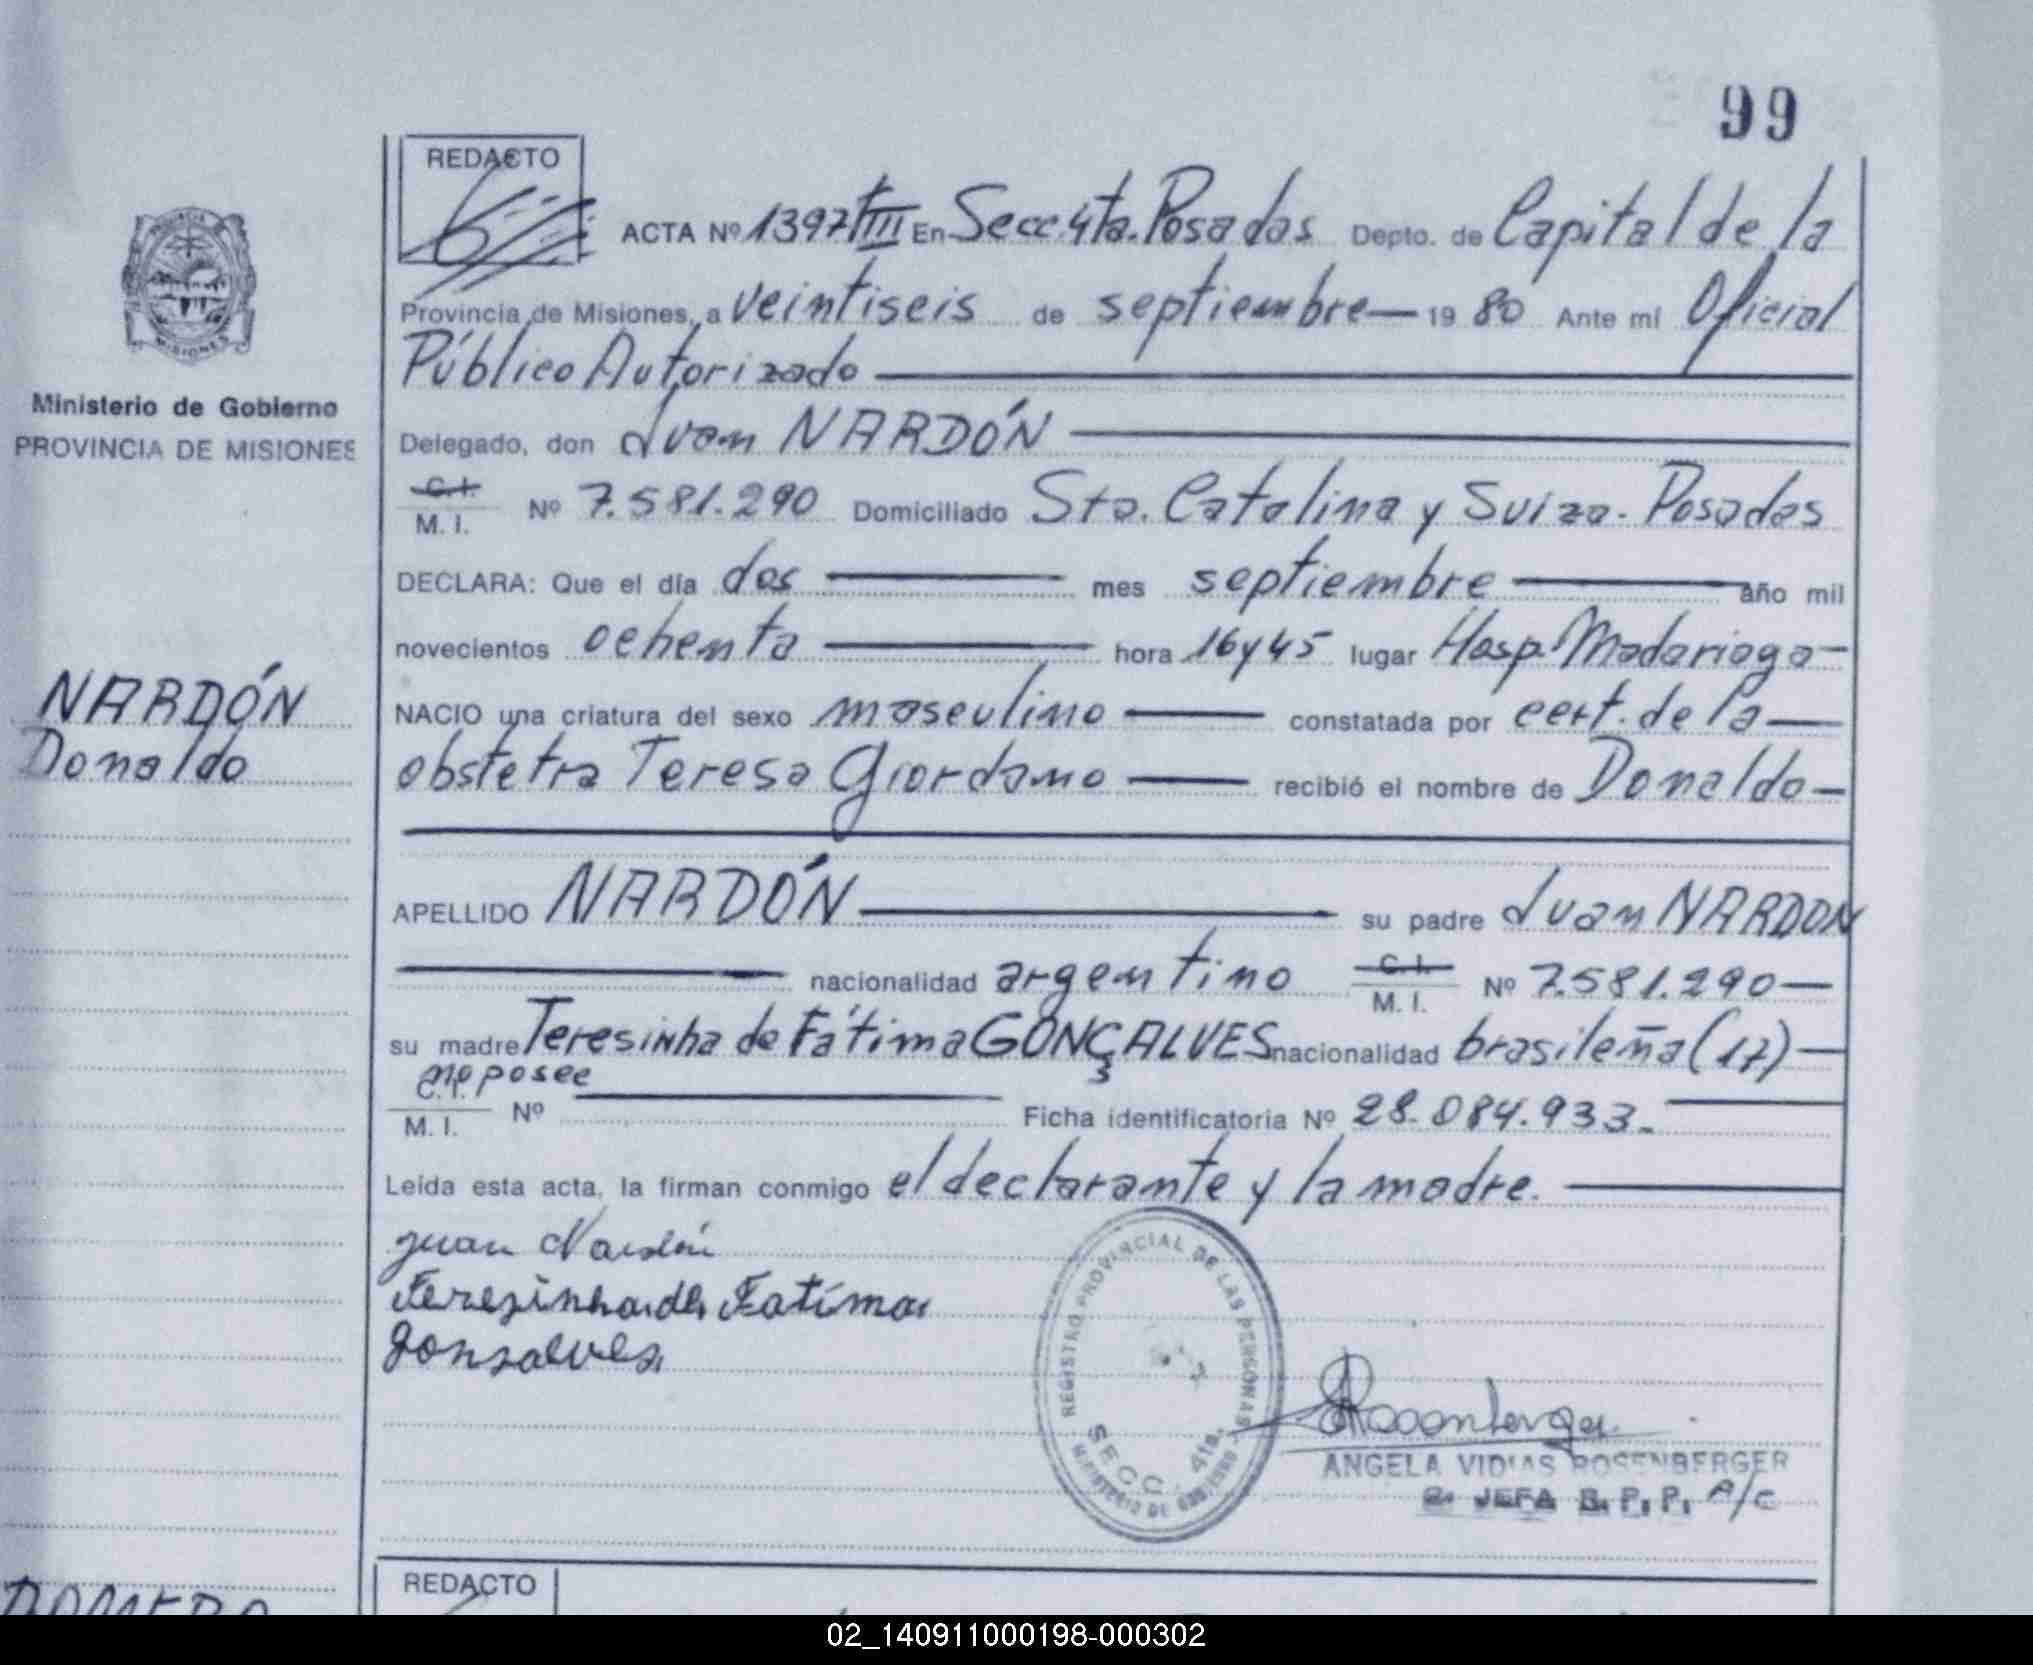 99
REDACTO
ACTA Nº 1397 tIII En Secc. 4ta. Posadas Depto. de Capital de la
Provincia de Misiones, a veintiseis de septiembre — 19 80 Ante mí Oficial
Público Autorizado
Delegado, don Juan NARDÓN
C.I.
M. I. Nº 7.581.290 Domiciliado Sta. Catalina y Suiza. Posadas
DECLARA: Que el día dos mes septiembre año mil
novecientos ochenta hora 16 y 45 lugar Hosp. Madariaga
NACIO una criatura del sexo masculino constatada por cert. de la
obstetra Teresa Giordano recibió el nombre de Donaldo
APELLIDO NARDÓN su padre Juan NARDON
nacionalidad argentino C.I. M. I. Nº 7.581.290
su madre Teresinha de Fátima GONÇALVES nacionalidad brasileña (17)
no posee
C.I.
M. I. Nº Ficha identificatoria Nº 28.084.933.
Leída esta acta, la firman conmigo el declarante y la madre.
Juan Nardón
Teresinha de Fatima
Gonsalves
REGISTRO PROVINCIAL DE LAS PERSONAS
SECC. 4ta.
MINISTERIO DE GOBIERNO
Rosenberger
ANGELA VIDIAS ROSENBERGER
2ª JEFA R. P. P. A/C
PROVINCIA
MISIONES
Ministerio de Gobierno
PROVINCIA DE MISIONES
NARDÓN
Donaldo
ROMERO
REDACTO
02_140911000198-000302